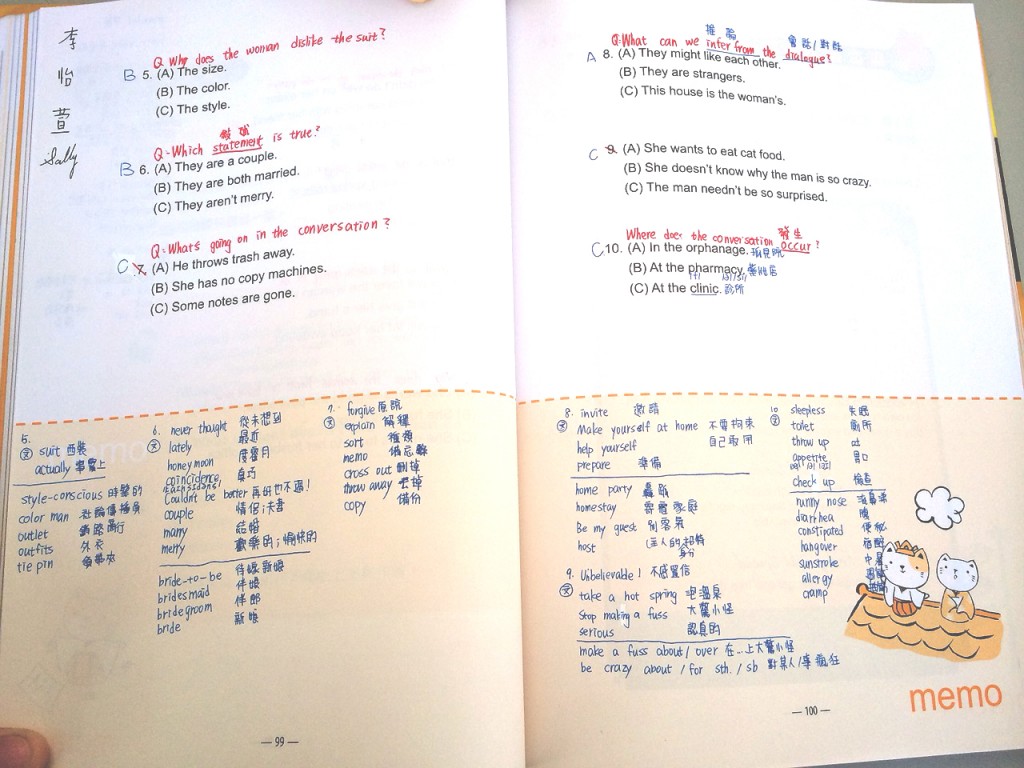 李
怡
萱
Sally
Q. Why does the woman dislike the suit?
B 5. (A) The size.
(B) The color.
(C) The style.
Q: Which statement is true?
B 6. (A) They are a couple.
(B) They are both married.
(C) They aren't merry.
Q: What's going on in the conversation?
C 7. (A) He throws trash away.
(B) She has no copy machines.
(C) Some notes are gone.
5.
suit 西裝
actually 事實上
style-conscious 時髦的
color man
outlet
outfits 外衣
tie pin 領帶夾
6. never thought 從未想到
lately 最近
honeymoon 度蜜月
coincidence
Couldn't be better 再好也不過!
couple 情侶;夫妻
marry 結婚
merry 歡樂的;愉快的
bride-to-be
bridesmaid 伴娘
bridegroom
bride 新娘
7. forgive 原諒
explain 解釋
sort 種類
memo 備忘錄
cross out 刪掉
throw away 丟掉
copy 備份
— 99 —
推論 會話/對話
Q: What can we infer from the dialogue?
A 8. (A) They might like each other.
(B) They are strangers.
(C) This house is the woman's.
C 9. (A) She wants to eat cat food.
(B) She doesn't know why the man is so crazy.
(C) The man needn't be so surprised.
發生
Where does the conversation occur?
C 10. (A) In the orphanage. 孤兒院
(B) At the pharmacy.
(C) At the clinic. 診所
8. invite 邀請
Make yourself at home 不要拘束
help yourself 自己取用
prepare 準備
home party
homestay
Be my guest 別客氣
host
9. Unbelievable! 不感置信
take a hot spring 泡溫泉
Stop making a fuss 大驚小怪
serious 認真的
make a fuss about / over 在...上大驚小怪
be crazy about / for sth. / sb 對某人/事瘋狂
10. sleepless 失眠
toilet 廁所
throw up 吐
appetite 胃口
check up 檢查
runny nose
diarrhea
constipated 便秘
hangover 宿醉
sunstroke 中暑
allergy
cramp
memo
— 100 —